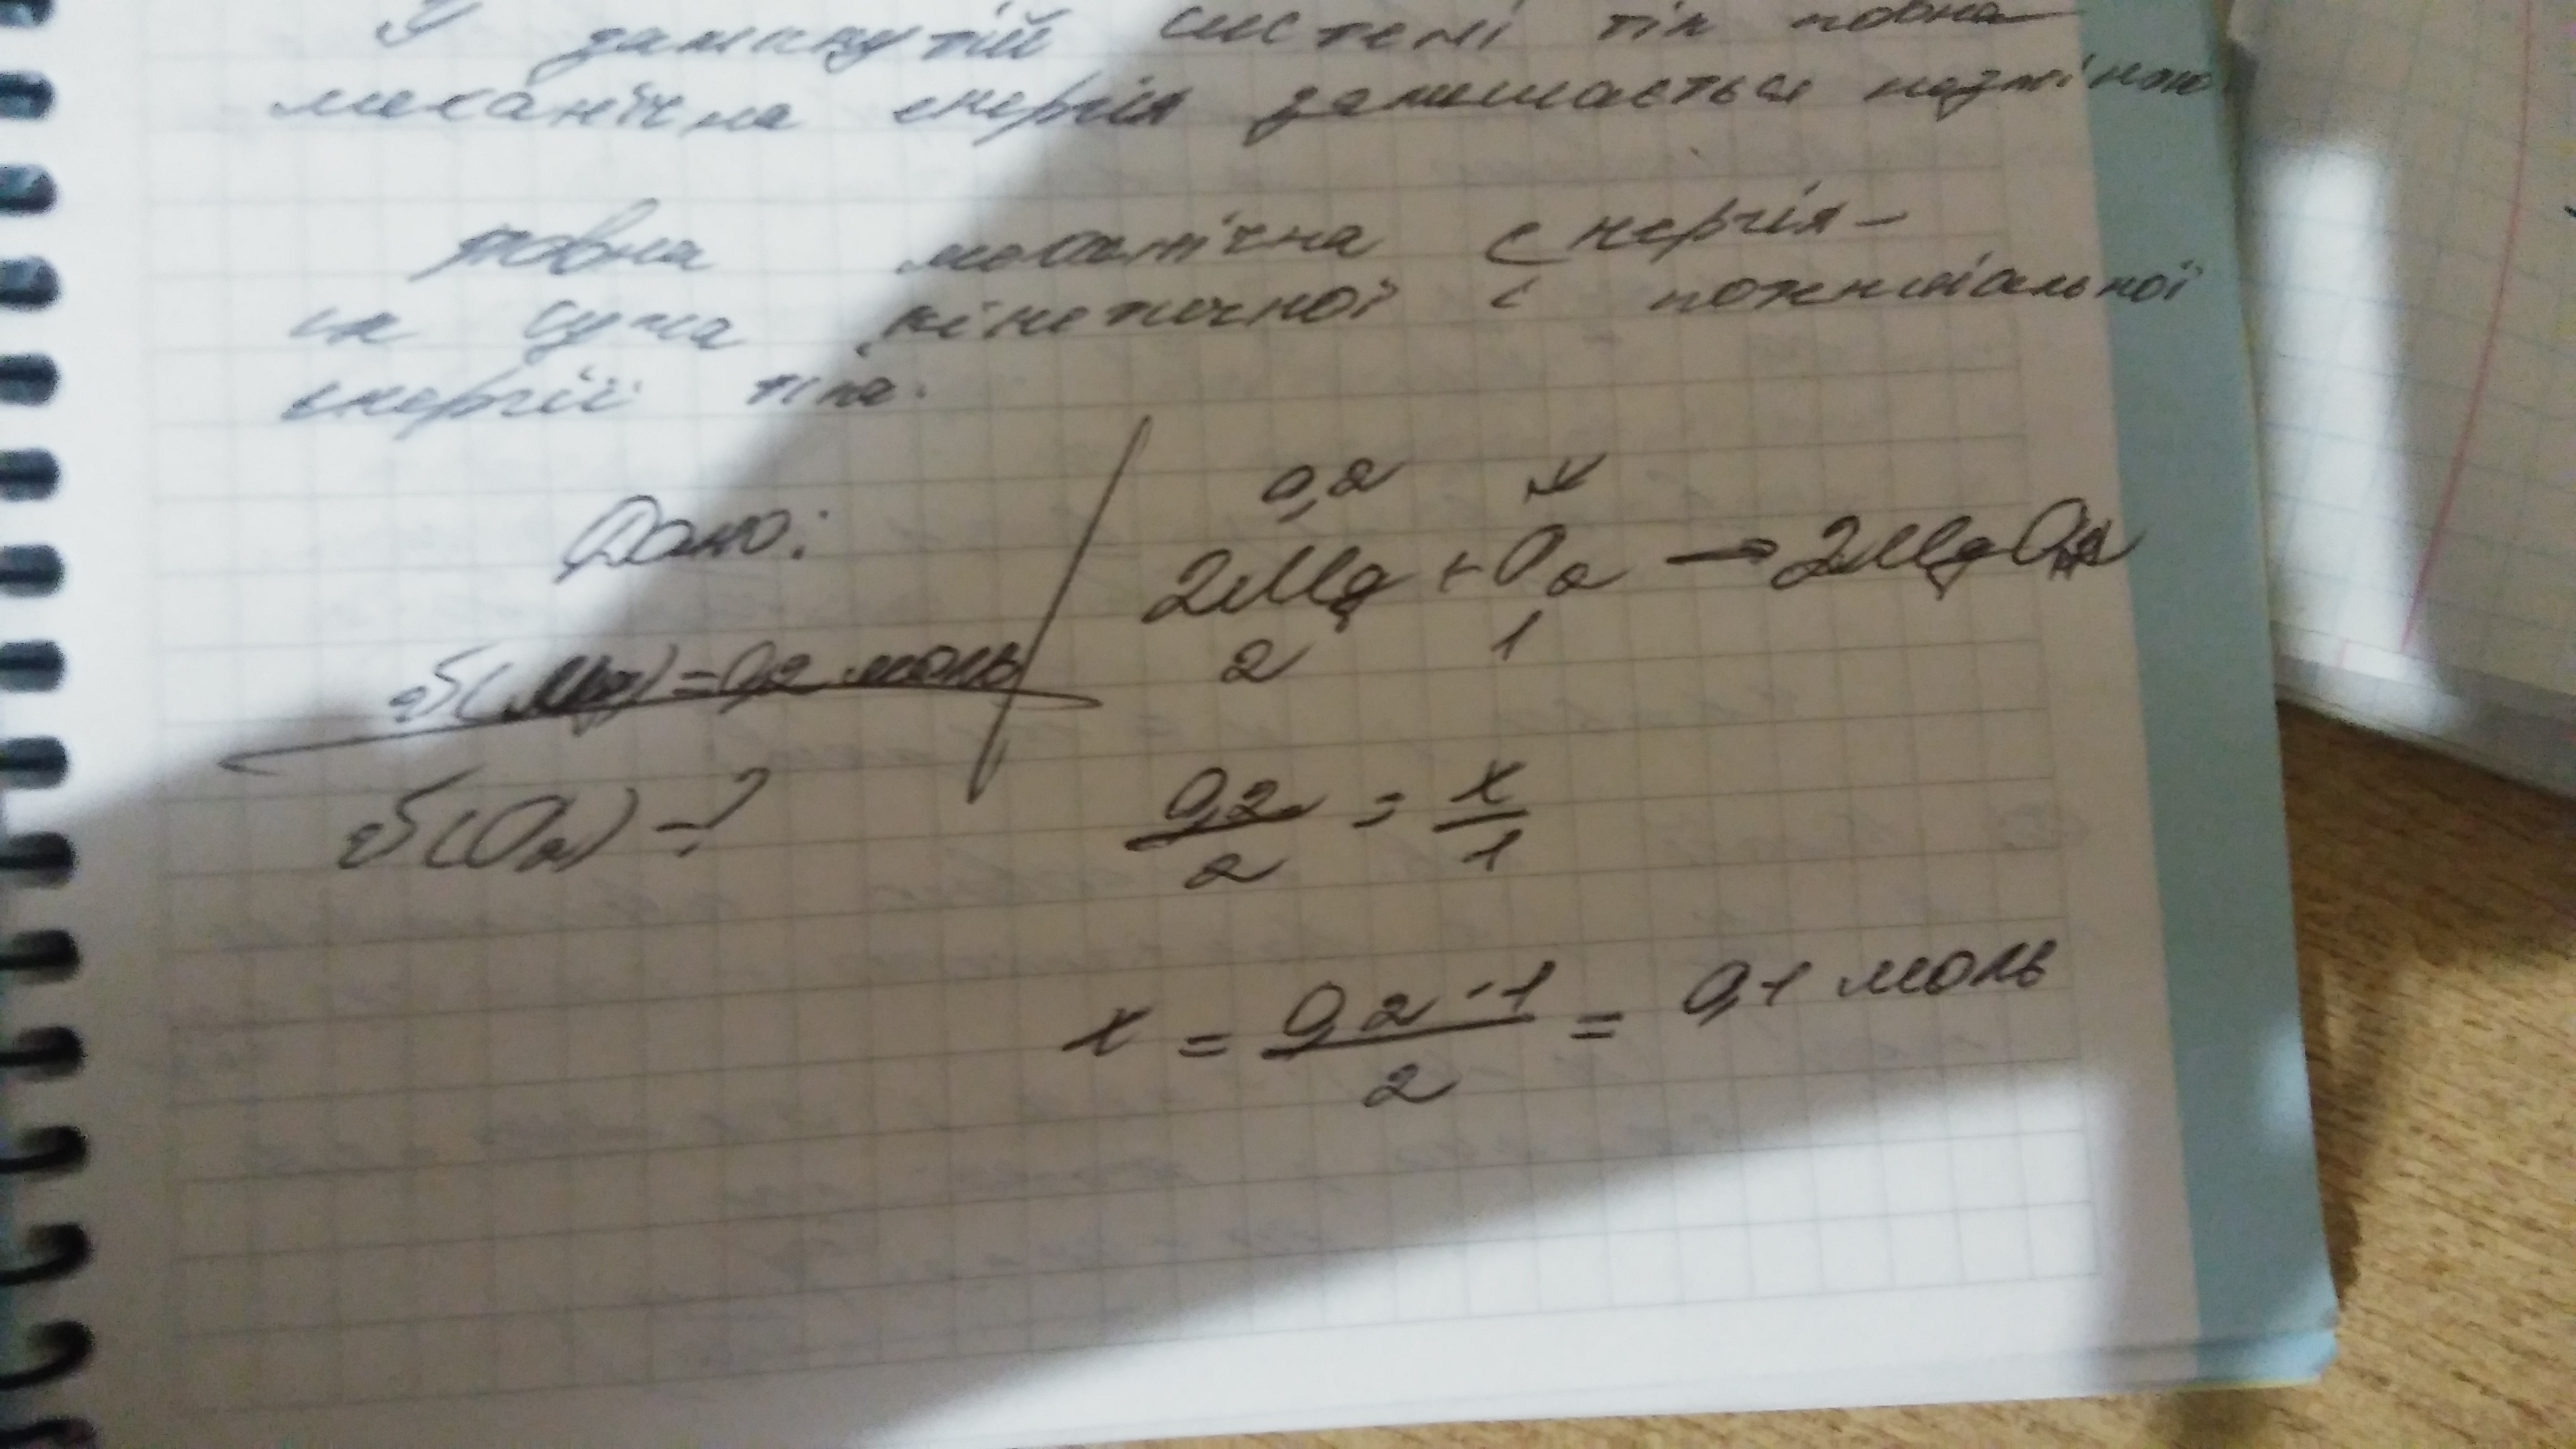 У замкнутій системі тіл повна
механічна енергія залишається незмінною
повна механічна енергія –
це сума кінетичної і потенціальної
енергії тіла.
Дано:
υ(Mg)=0,2 моль
υ(O2) – ?
0,2 x
2Mg + O2 → 2MgO
2 1
0,2/2 = x/1
x = 0,2·1/2 = 0,1 моль